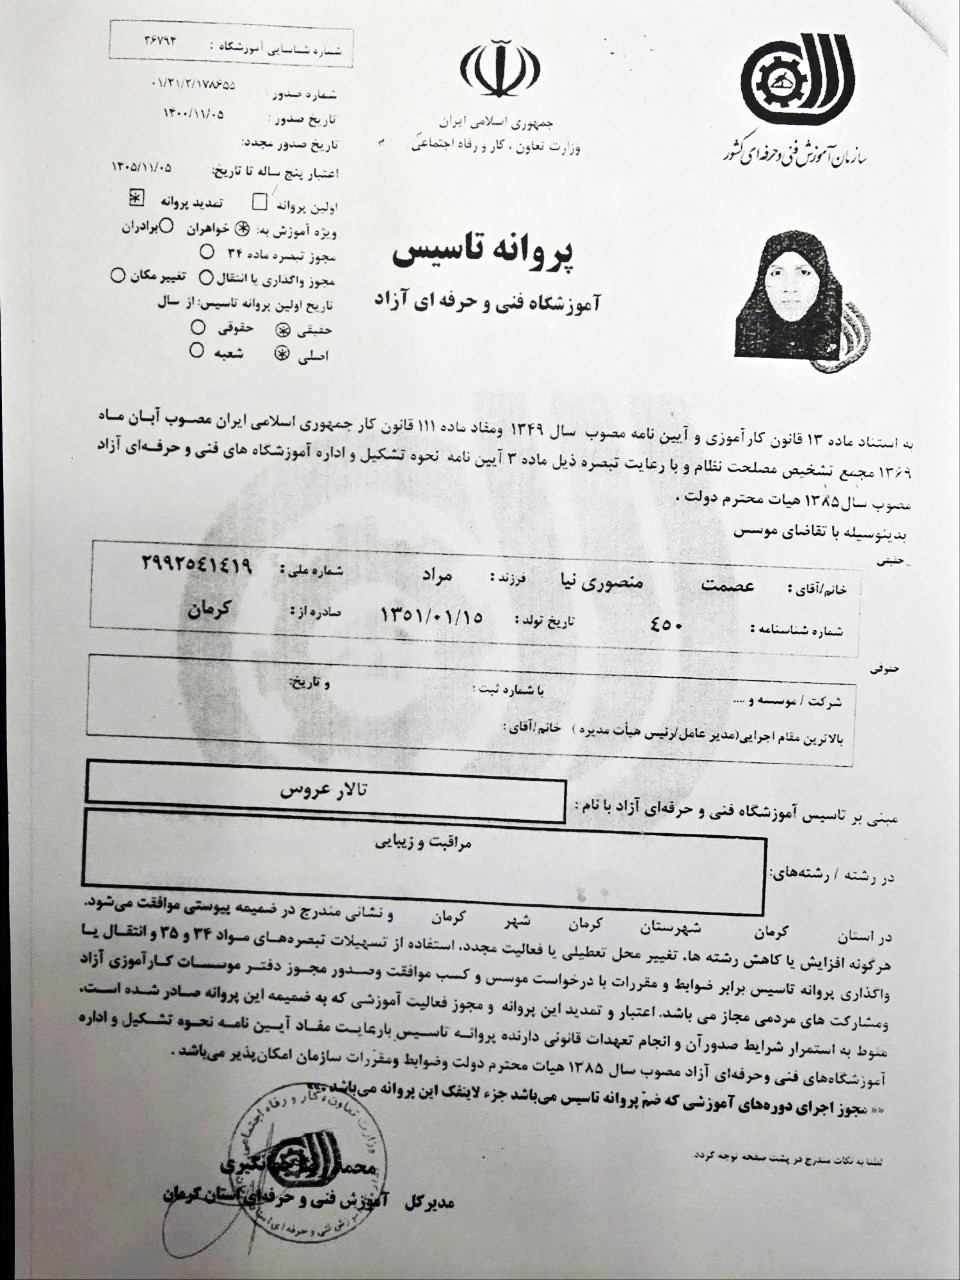 شماره شناسایی آموزشگاه : ۳۶۷۹۴
شماره صدور : ۰۱/۲۱/۲/۱۷۸۶۵۵
تاریخ صدور : ۱۴۰۰/۱۱/۰۵
تاریخ صدور مجدد:
اعتبار پنج ساله تا تاریخ: ۱۴۰۵/۱۱/۰۵
اولین پروانه تمدید پروانه
ویژه آموزش به: خواهران برادران
مجوز تبصره ماده ۳۴
مجوز واگذاری یا انتقال تغییر مکان
تاریخ اولین پروانه تاسیس: از سال
حقیقی حقوقی
اصلی شعبه
جمهوری اسلامی ایران
وزارت تعاون ، کار و رفاه اجتماعی
سازمان آموزش فنی و حرفه‌ای کشور
پروانه تاسیس
آموزشگاه فنی و حرفه ای آزاد
به استناد ماده ۱۳ قانون کارآموزی و آیین نامه مصوب سال ۱۳۴۹ ومفاد ماده ۱۱۱ قانون کار جمهوری اسلامی ایران مصوب آبان ماه
۱۳۶۹ مجمع تشخیص مصلحت نظام و با رعایت تبصره ذیل ماده ۳ آیین نامه نحوه تشکیل و اداره آموزشگاه های فنی و حرفه‌ای آزاد
مصوب سال ۱۳۸۵ هیات محترم دولت .
بدینوسیله با تقاضای موسس
حقیقی
خانم/آقای : عصمت منصوری نیا فرزند : مراد شماره ملی : ۲۹۹۲۵۴۱۴۱۹
شماره شناسنامه : ۴۵۰ تاریخ تولد : ۱۳۵۱/۰۱/۱۵ صادره از : کرمان
حقوقی
شرکت / موسسه و .... با شماره ثبت : و تاریخ:
بالاترین مقام اجرایی(مدیر عامل/رئیس هیأت مدیره ) خانم/آقای :
مبنی بر تاسیس آموزشگاه فنی و حرفه‌ای آزاد با نام : تالار عروس
در رشته / رشته‌های: مراقبت و زیبایی
در استان کرمان شهرستان کرمان شهر کرمان و نشانی مندرج در ضمیمه پیوستی موافقت می‌شود.
هرگونه افزایش یا کاهش رشته ها، تغییر محل تعطیلی یا فعالیت مجدد، استفاده از تسهیلات تبصره‌های مواد ۳۴ و ۳۵ و انتقال یا
واگذاری پروانه تاسیس برابر ضوابط و مقررات با درخواست موسس و کسب موافقت وصدور مجوز دفتر موسسات کارآموزی آزاد
ومشارکت های مردمی مجاز می باشد. اعتبار و تمدید این پروانه و مجوز فعالیت آموزشی که به ضمیمه این پروانه صادر شده است،
منوط به استمرار شرایط صدورآن و انجام تعهدات قانونی دارنده پروانه تاسیس بارعایت مفاد آیین نامه نحوه تشکیل و اداره
آموزشگاه‌های فنی وحرفه‌ای آزاد مصوب سال ۱۳۸۵ هیات محترم دولت وضوابط ومقررات سازمان امکان‌پذیر می‌باشد .
«« مجوز اجرای دوره‌های آموزشی که ضم پروانه تاسیس می‌باشد جزء لاینفک این پروانه می‌باشد .»»
لطفا به نکات مندرج در پشت صفحه توجه گردد.
وزارت تعاون، کار و رفاه اجتماعی
مدیرکل آموزش فنی و حرفه‌ای استان کرمان